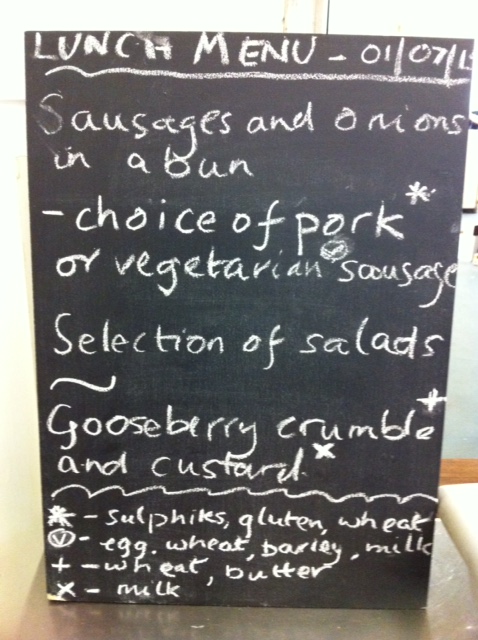 LUNCH MENU - 01/07/1
Sausages and onions
in a bun
- choice of pork *
or vegetarian Ⓥ sausage
Selection of salads
~
Gooseberry crumble +
and custard x
* - sulphites, gluten, wheat
Ⓥ - egg. wheat, barley, milk
+ - wheat, butter
x - milk